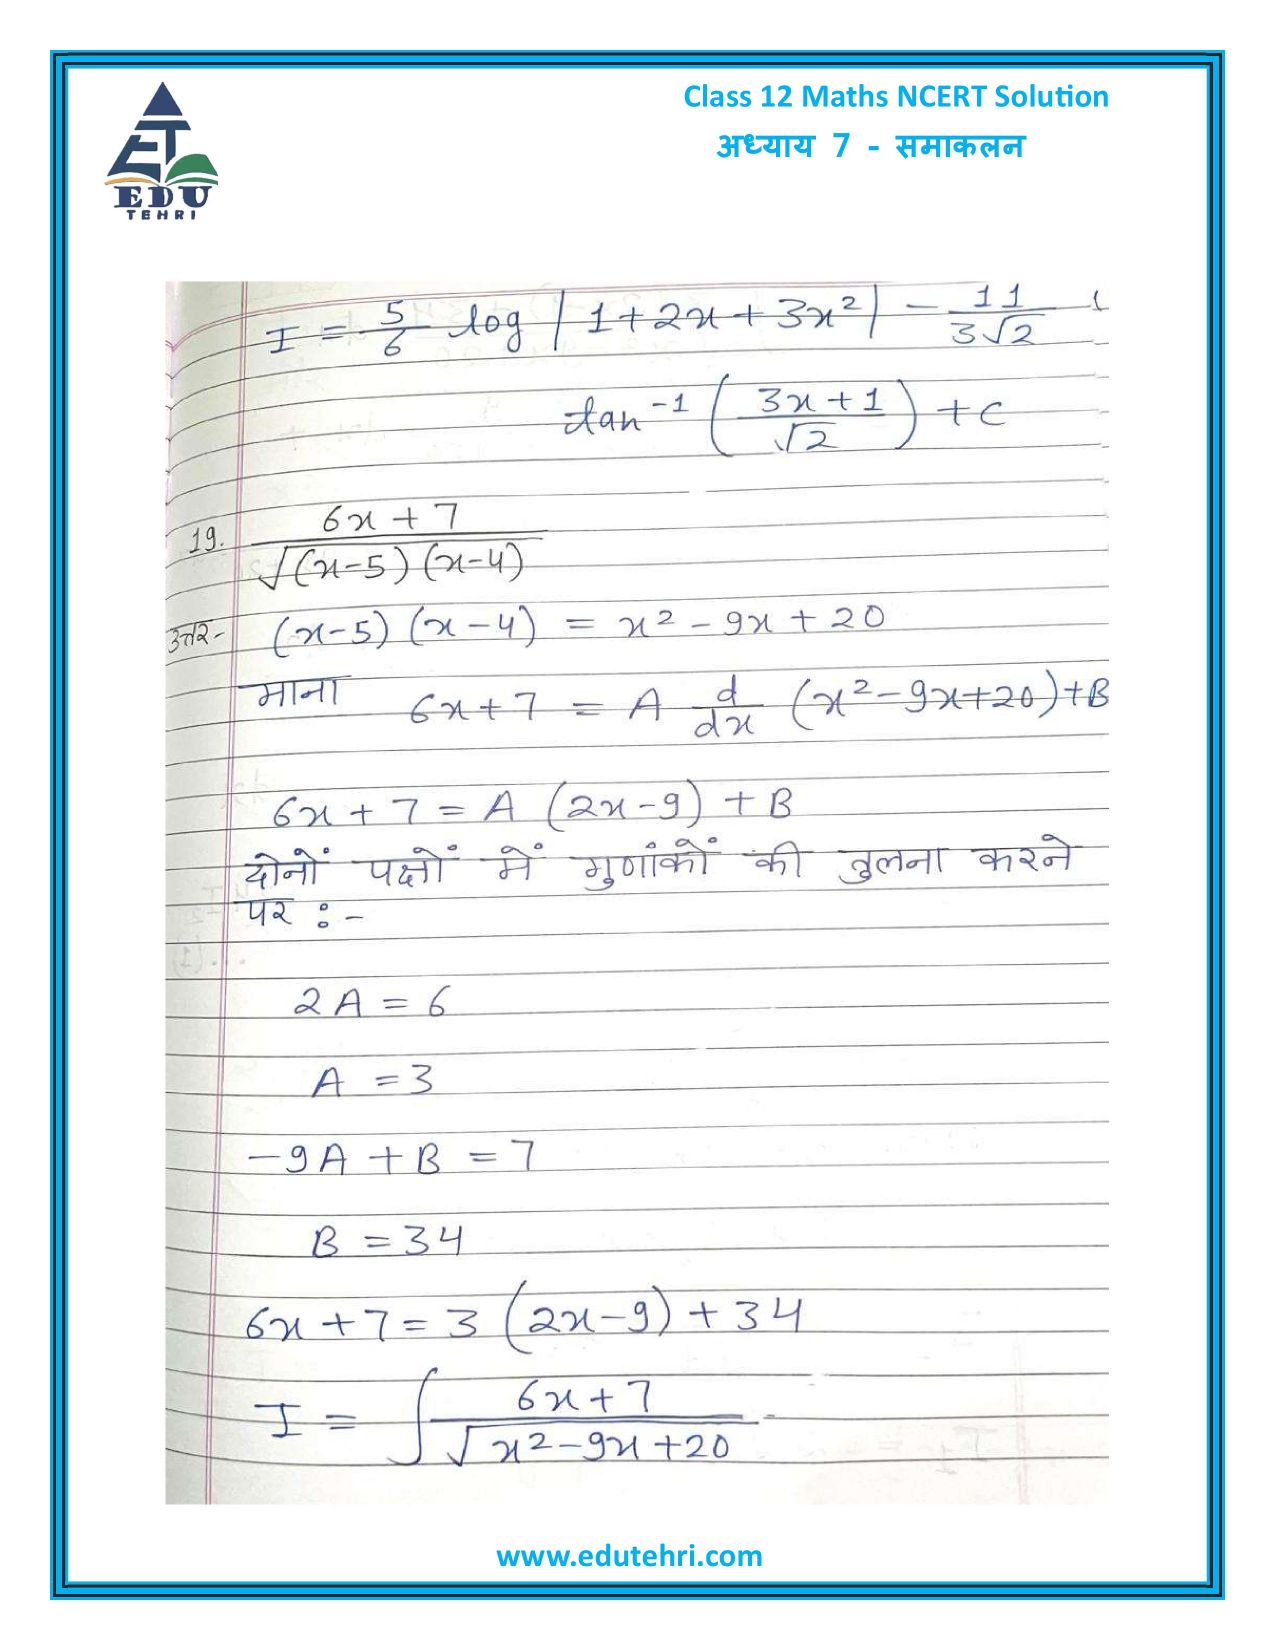 Class 12 Maths NCERT Solution
अध्याय 7 - समाकलन
EDU
TEHRI
I = 5/6 log |1+2x+3x²| - 11/3√2
tan⁻¹ (3x+1/√2) + C
19. 6x+7/√(x-5)(x-4)
उत्तर- (x-5)(x-4) = x²-9x+20
माना 6x+7 = A d/dx (x²-9x+20)+B
6x+7 = A (2x-9) + B
दोनों पक्षों में गुणांकों की तुलना करने
पर :-
2A = 6
A = 3
-9A + B = 7
B = 34
6x+7 = 3 (2x-9) + 34
I = ∫ 6x+7/√x²-9x+20
www.edutehri.com